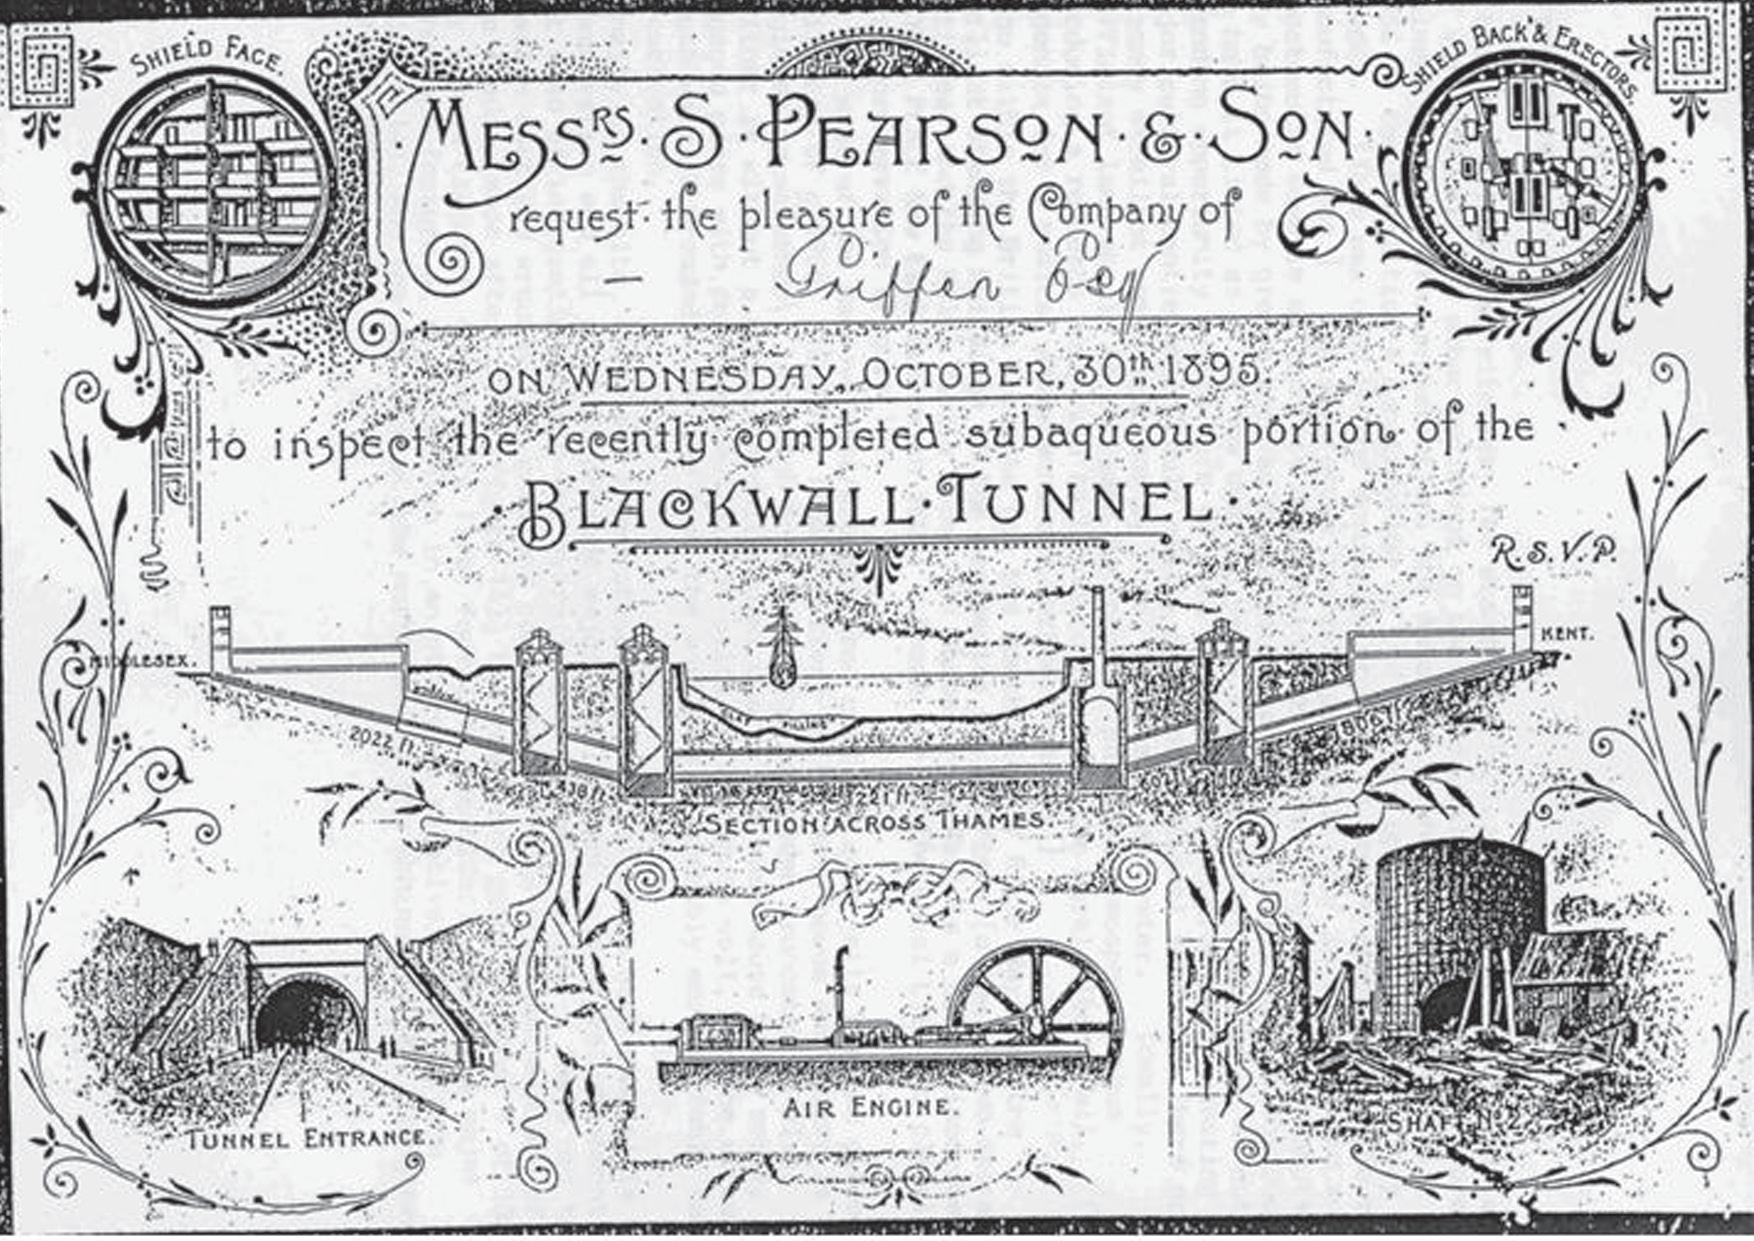 SHIELD FACE.
SHIELD BACK & ERECTORS.
MESSRS. S. PEARSON & SON.
request the pleasure of the Company of
O. Griffen Esq
ON WEDNESDAY, OCTOBER, 30th 1895.
to inspect the recently completed subaqueous portion of the
BLACKWALL TUNNEL.
R.S.V.P.
MIDDLESEX.
KENT.
CLAY FILLING
2022 ft.
1221 ft
SECTION ACROSS THAMES.
TUNNEL ENTRANCE.
AIR ENGINE.
SHAFT No 2.